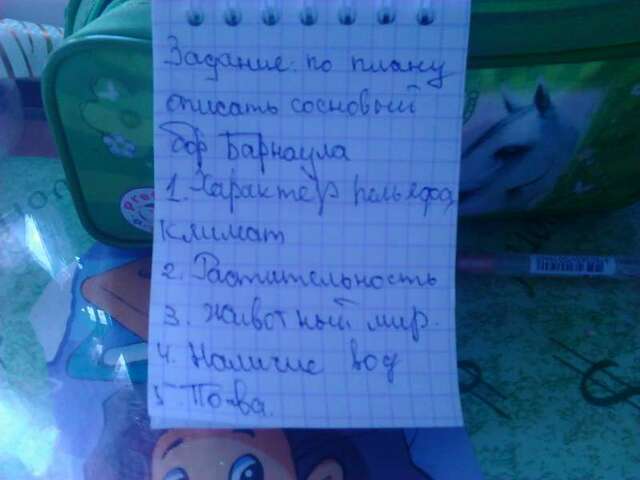 Задание: по плану
описать сосновый
бор Барнаула
1. Характер рельефа,
климат
2. Растительность
3. Животный мир.
4. Наличие вод
5. Почва.